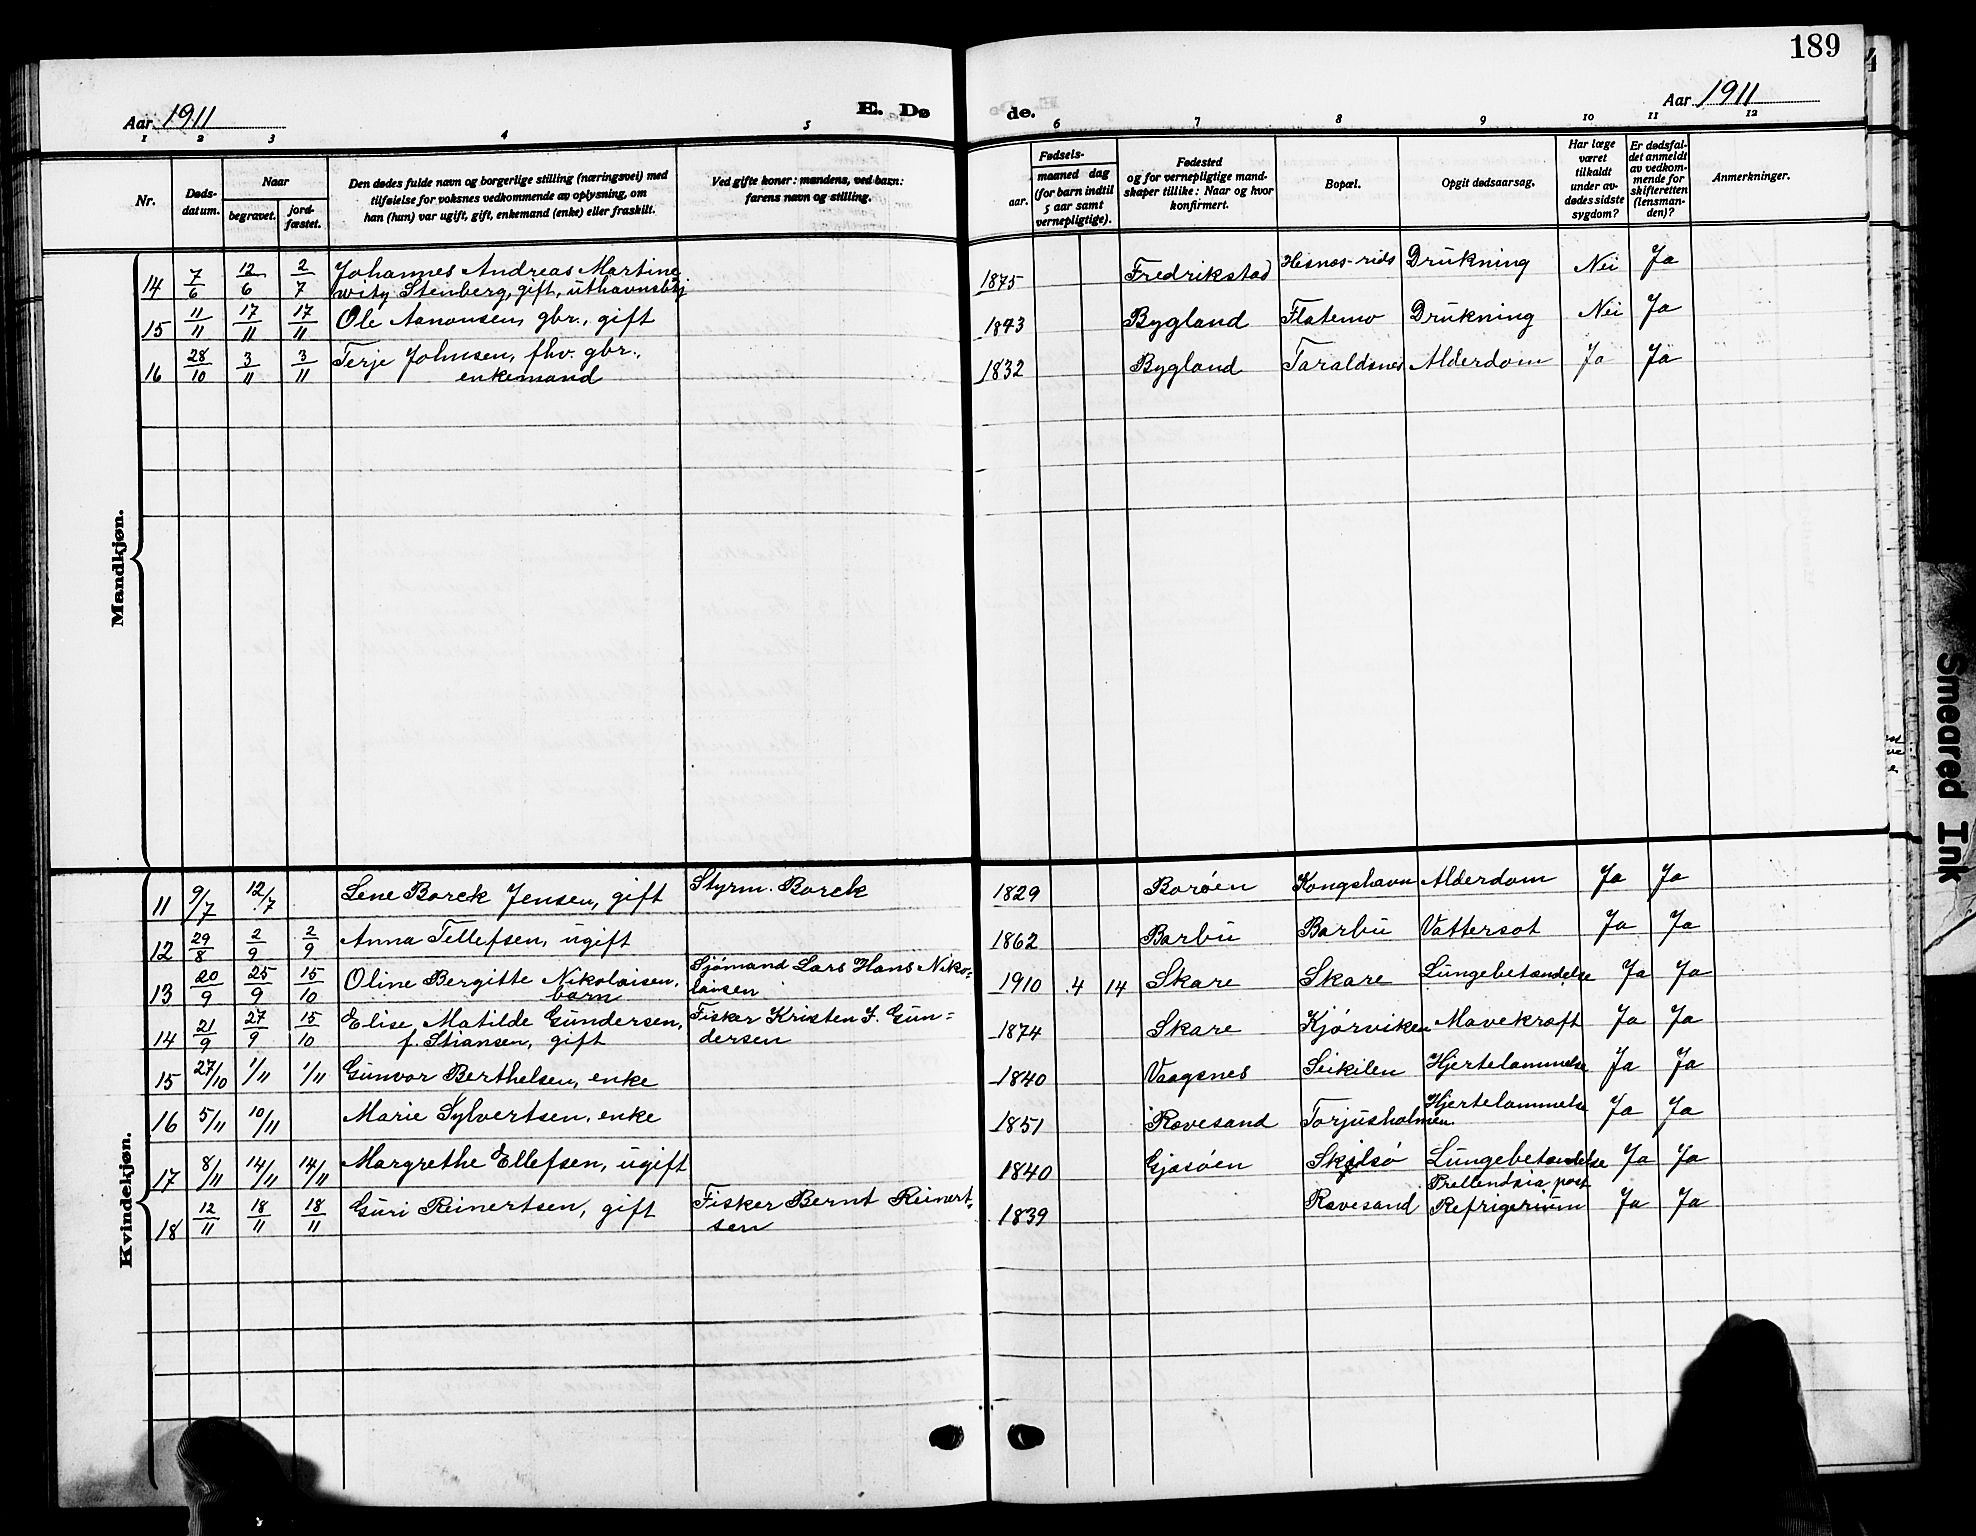 189
Aar 1911
E. Dø
de.
Aar 1911
1 2 3 4 5 6 7 8 9 10 11 12
Nr.
Døds-
datum.
Naar
begravet.
jord-
fæstet.
Den dødes fulde navn og borgerlige stilling (næringsvei) med
tilføielse for voksnes vedkommende av oplysning, om
han (hun) var ugift, gift, enkemand (enke) eller fraskilt.
Ved gifte koner: mandens, ved barn:
farens navn og stilling.
Fødsels-
aar.
maaned dag
(for barn indtil
5 aar samt
vernepligtige).
Fødested
og for vernepligtige mand-
skaper tillike: Naar og hvor
konfirmert.
Bopæl.
Opgit dødsaarsag.
Har læge
været
tilkaldt
under av-
dødes sidste
sygdom?
Er dødsfal-
det anmeldt
av vedkom-
mende for
skifteretten
(lensman-
den)?
Anmerkninger.
Mandkjøn.
14 7/6 12/6 2/7 Johannes Andreas Martine
Stenberg, gift, 1875 Fredrikstad Hesnes-rids Drukning Nei Ja
15 11/11 17/11 17/11 Ole Aanonsen, gbr., gift 1873 Bygland Flatemo Drukning Nei Ja
16 28/10 3/11 3/11 Terje Johnsen, fhv. gbr.,
enkemand 1832 Bygland Taraldsnes Alderdom Ja Ja
Kvindekjøn.
11 9/7 12/7 Lene Borck Jensen, gift Styrm. Borck 1829 Borøen Kongshavn Alderdom Ja Ja
12 29/8 2/9 2/9 Anna Tellefsen, ugift 1862 Barbu Barbu Vattersot Ja Ja
13 20/9 25/9 15/10 Oline Bergitte Nikolaisen,
barn Sjømand Lars Hans Niko-
laisen 1910 4 14 Skare Skare Lungebetændelse Ja Ja
14 21/9 27/9 15/10 Elise Matilde Gundersen,
f. Stiansen, gift Fisker Kristen J. Gun-
dersen 1874 Skare Kjørviken Mavekræft Ja Ja
15 27/10 1/11 1/11 Gunvor Berthelsen, enke 1840 Vaagsnes Seikilen Hjertelammelse Ja Ja
16 5/11 10/11 Marie Sylvertsen, enke 1851 Rævesand Torjusholmen. Hjertelammelse Ja Ja
17 8/11 14/11 14/11 Margrethe Ellefsen, ugift 1840 Gjøsøen Skilsø Lungebetændelse Ja Ja
18 12/11 18/11 18/11 Guri Reinertsen, gift Fisker Bernt Reinert-
sen 1839 Rævesand post
Refrigerium Ja Ja
Smeared Ink